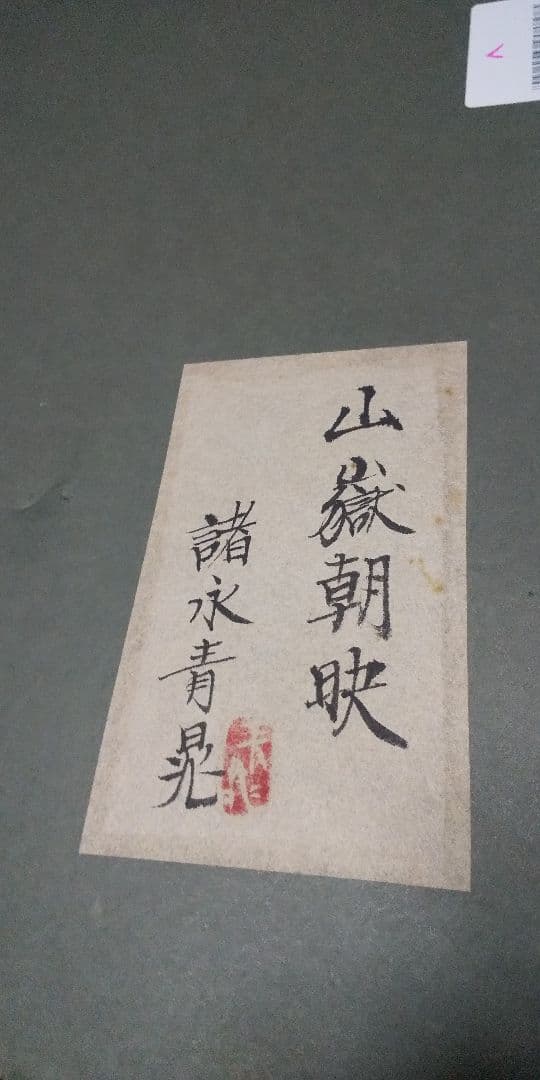 山嶽朝映
諸永青晃